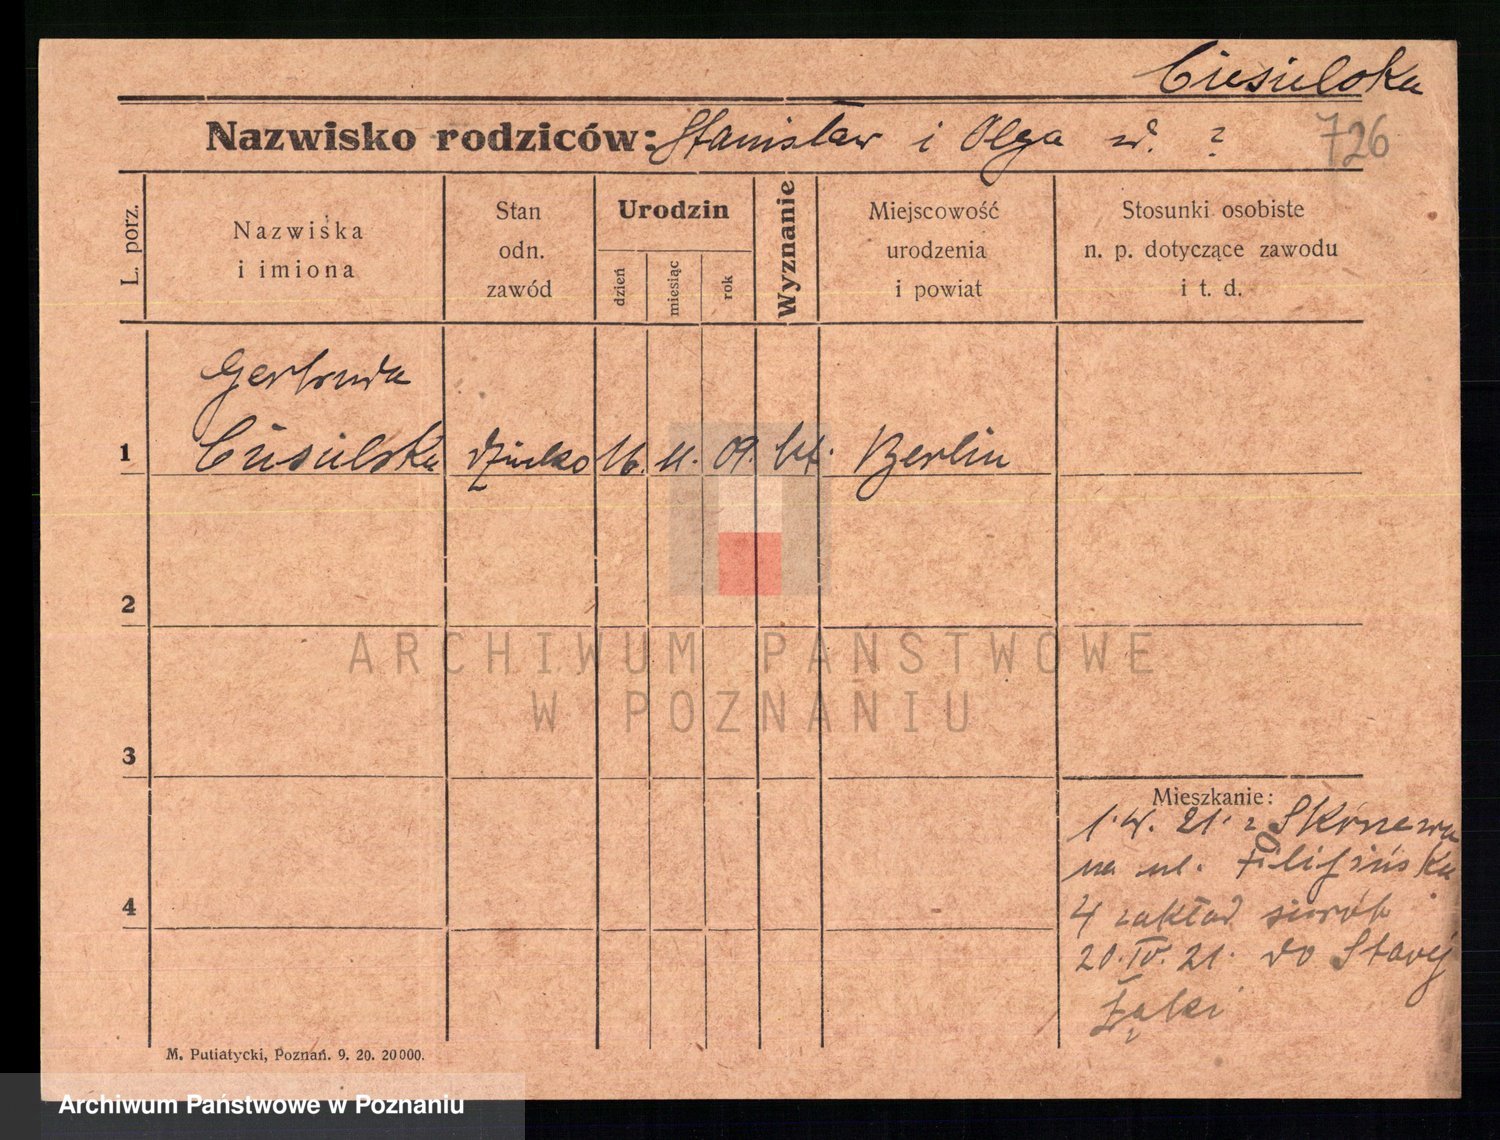 Ciesielska
Nazwisko rodziców: Stanisław i Olga zd. ?
726
L. porz.
Nazwiska
i imiona
Stan
odn.
zawód
Urodzin
dzień
miesiąc
rok
Wyznanie
Miejscowość
urodzenia
i powiat
Stosunki osobiste
n. p. dotyczące zawodu
i t. d.
Gertruda
1 Ciesielska dziecko 16. 11. 09. kat. Berlin
2
3
4
Mieszkanie:
21. z
na ul.
4 zakład sierót
20. IV. 21. do Starej
Łąki
M. Putiatycki, Poznań. 9. 20. 20000.
ARCHIWUM PAŃSTWOWE
W POZNANIU
Archiwum Państwowe w Poznaniu